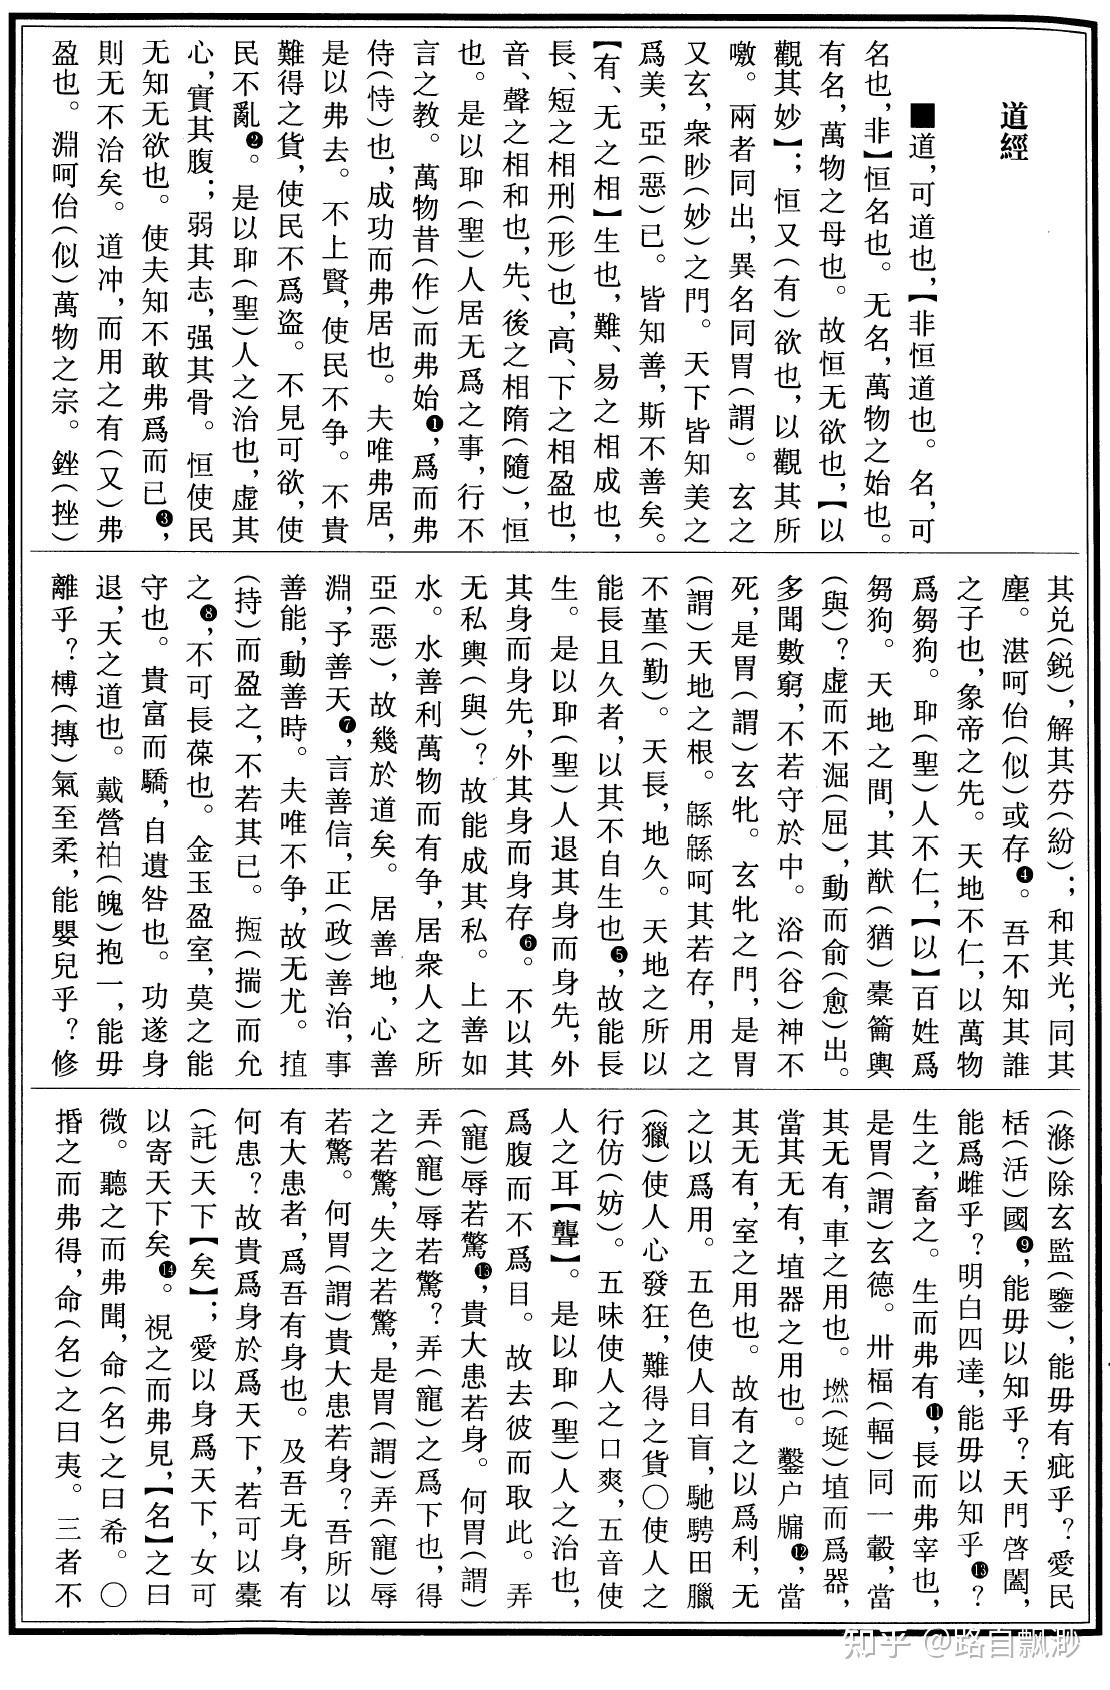 道經
■道，可道也，【非恒道也。名，可
名也，非】恒名也。无名，萬物之始也。
有名，萬物之母也。故恒无欲也，【以
觀其妙】；恒又（有）欲也，以觀其所
噭。兩者同出，異名同胃（謂）。玄之
又玄，衆眇（妙）之門。天下皆知美之
爲美，亞（惡）已。皆知善，斯不善矣。
【有、无之相】生也，難、易之相成也，
長、短之相刑（形）也，高、下之相盈也，
音、聲之相和也，先、後之相隋（隨），恒
也。是以耴（聖）人居无爲之事，行不
言之教。萬物昔（作）而弗始❶，爲而弗
侍（恃）也，成功而弗居也。夫唯弗居，
是以弗去。不上賢，使民不争。不貴
難得之貨，使民不爲盗。不見可欲，使
民不亂❷。是以耴（聖）人之治也，虚其
心，實其腹；弱其志，强其骨。恒使民
无知无欲也。使夫知不敢弗爲而已❸，
則无不治矣。道冲，而用之有（又）弗
盈也。淵呵佁（似）萬物之宗。銼（挫）
其兑（鋭），解其芬（紛）；和其光，同其
塵。湛呵佁（似）或存❹。吾不知其誰
之子也，象帝之先。天地不仁，以萬物
爲芻狗。耴（聖）人不仁，【以】百姓爲
芻狗。天地之間，其猷（猶）橐籥輿
（與）？虚而不淈（屈），動而俞（愈）出。
多聞數窮，不若守於中。浴（谷）神不
死，是胃（謂）玄牝。玄牝之門，是胃
（謂）天地之根。緜緜呵其若存，用之
不堇（勤）。天長，地久。天地之所以
能長且久者，以其不自生也❺，故能長
生。是以耴（聖）人退其身而身先，外
其身而身先，外其身而身存❻。不以其
无私輿（與）？故能成其私。上善如
水。水善利萬物而有争，居衆人之所
亞（惡），故幾於道矣。居善地，心善
淵，予善天❼，言善信，正（政）善治，事
善能，動善時。夫唯不争，故无尤。揎
（持）而盈之，不若其已。㨃（揣）而允
之❽，不可長葆也。金玉盈室，莫之能
守也。貴富而驕，自遺咎也。功遂身
退，天之道也。戴營袙（魄）抱一，能毋
離乎？槫（摶）氣至柔，能嬰兒乎？修
（滌）除玄監（鑒），能毋有疵乎？愛民
栝（活）國❾，能毋以知乎？天門啓闔，
能爲雌乎？明白四達，能毋以知乎⓭？
生之，畜之。生而弗有⓫，長而弗宰也，
是胃（謂）玄德。卅楅（輻）同一轂，當
其无有，車之用也。撚（埏）埴而爲器，
當其无有，埴器之用也。鑿户牖⓬，當
其无有，室之用也。故有之以爲利，无
之以爲用。五色使人目盲，馳騁田臘
（獵）使人心發狂，難得之貨〇使人之
行仿（妨）。五味使人之口爽，五音使
人之耳【聾】。是以耴（聖）人之治也，
爲腹而不爲目。故去彼而取此。弄
（寵）辱若驚⓭，貴大患若身。何胃（謂）
弄（寵）辱若驚？弄（寵）之爲下也，得
之若驚，失之若驚，是胃（謂）弄（寵）辱
若驚。何胃（謂）貴大患若身？吾所以
有大患者，爲吾有身也。及吾无身，有
何患？故貴爲身於爲天下，若可以橐
（託）天下【矣】；愛以身爲天下，女可
以寄天下矣⓮。視之而弗見，【名】之曰
微。聽之而弗聞，命（名）之曰希。〇
捪之而弗得，命（名）之曰夷。三者不
知乎 @路自飘渺